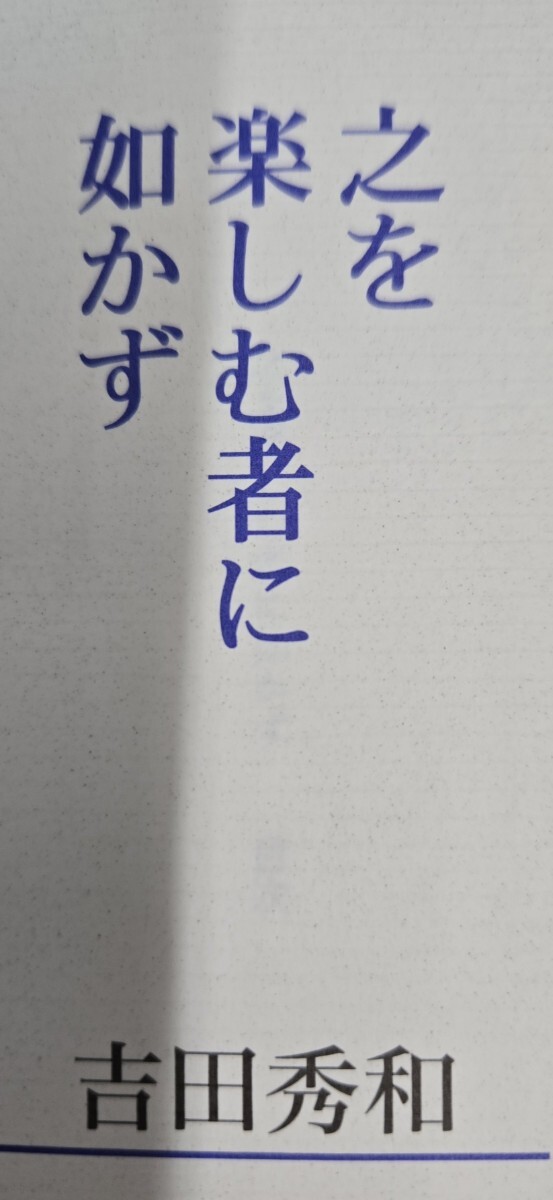 之を
楽しむ者に
如かず
吉田秀和